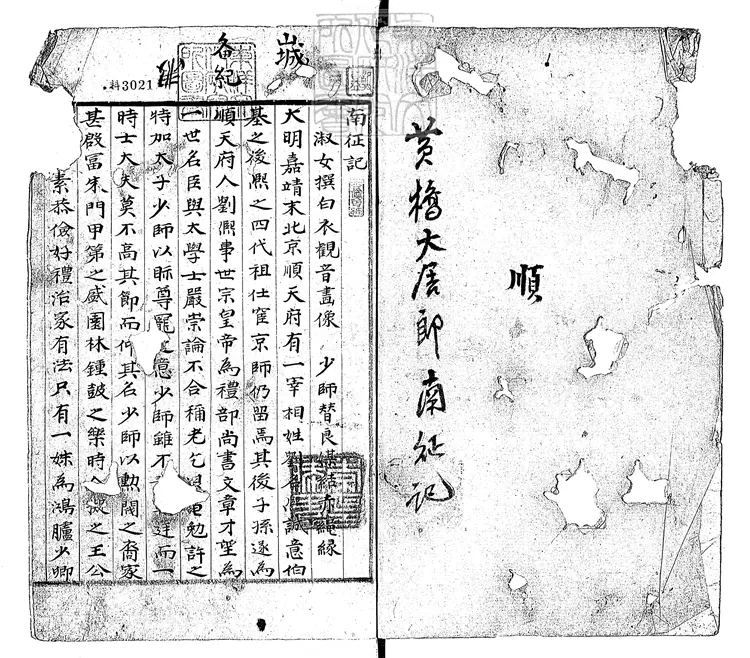 順
黄橋大居郎南征記
南征記
淑女撰白衣觀音畫像 少師替良媒結赤繩緣
大明嘉靖末北京順天府有一宰相姓劉名熙誠意伯
基之後熙之四代祖仕宦京師仍留焉其後子孫遂為
順天府人劉熙事世宗皇帝為禮部尚書文章才望為
一世名臣與太學士嚴崇論不合稱老乞勉許之
特加太子少師以眎尊寵之意少師雖不廷而一
時士大夫莫不高其節而仰其名少師以勳閥之裔家
甚殷富朱門甲第之盛園林鍾鼓之樂時人之王公
素恭儉好禮治家有法只有一妹為鴻臚少卿
城
各紀
料3021